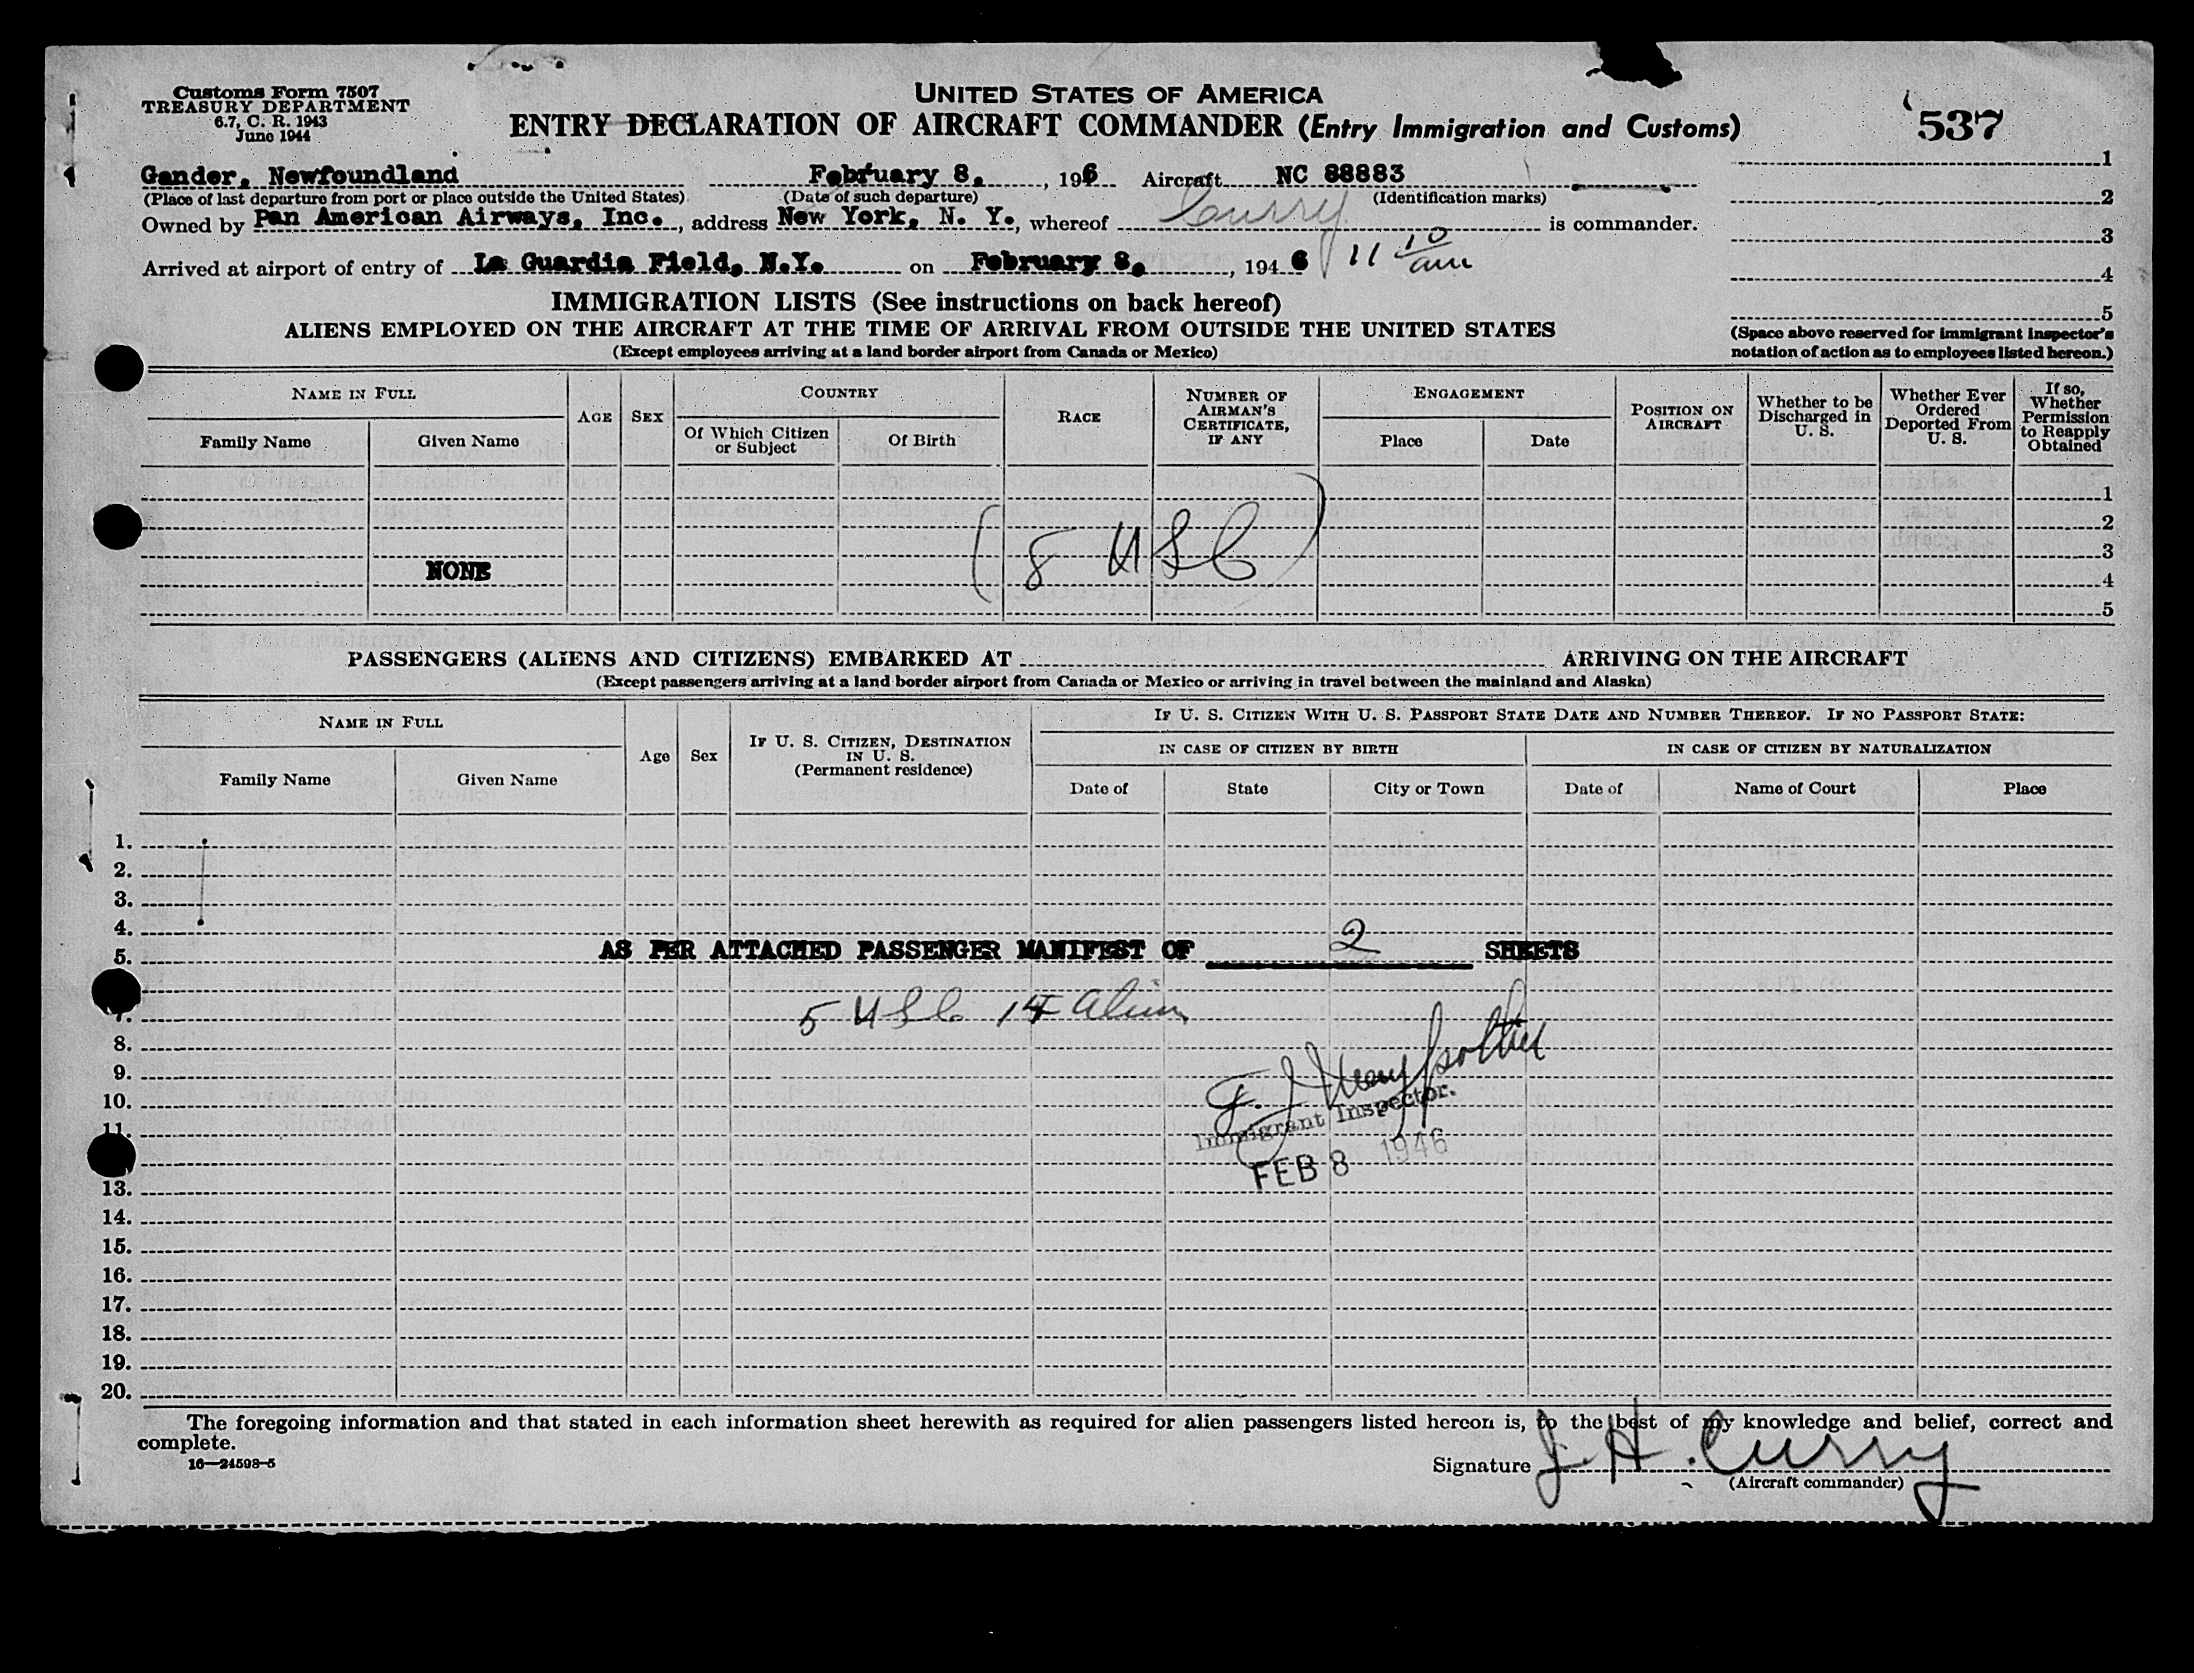 Customs Form 7507
TREASURY DEPARTMENT
6.7, C. R. 1943
June 1944
UNITED STATES OF AMERICA
ENTRY DECLARATION OF AIRCRAFT COMMANDER (Entry Immigration and Customs)
537
Gander, Newfoundland February 8, , 196 Aircraft NC 88883
(Place of last departure from port or place outside the United States) (Date of such departure) (Identification marks)
Owned by Pan American Airways, Inc. , address New York, N. Y. , whereof Curry is commander.
Arrived at airport of entry of La Guardia Field, N.Y. on February 8, , 1946 11 10 am
1
2
3
4
5
(Space above reserved for immigrant inspector's
notation of action as to employees listed hereon.)
IMMIGRATION LISTS (See instructions on back hereof)
ALIENS EMPLOYED ON THE AIRCRAFT AT THE TIME OF ARRIVAL FROM OUTSIDE THE UNITED STATES
(Except employees arriving at a land border airport from Canada or Mexico)
NAME IN FULL
Family Name Given Name
AGE SEX
COUNTRY
Of Which Citizen or Subject
Of Birth
RACE
NUMBER OF AIRMAN'S CERTIFICATE, IF ANY
ENGAGEMENT
Place Date
POSITION ON AIRCRAFT
Whether to be Discharged in U. S.
Whether Ever Ordered Deported From U. S.
If so, Whether Permission to Reapply Obtained
1
2
3
(8 USC)
NONE 4
5
PASSENGERS (ALIENS AND CITIZENS) EMBARKED AT ARRIVING ON THE AIRCRAFT
(Except passengers arriving at a land border airport from Canada or Mexico or arriving in travel between the mainland and Alaska)
NAME IN FULL
Family Name Given Name
Age Sex
IF U. S. CITIZEN, DESTINATION IN U. S.
(Permanent residence)
IF U. S. CITIZEN WITH U. S. PASSPORT STATE DATE AND NUMBER THEREOF. IF NO PASSPORT STATE:
IN CASE OF CITIZEN BY BIRTH IN CASE OF CITIZEN BY NATURALIZATION
Date of State City or Town Date of Name of Court Place
1.
2.
3.
4.
5. AS PER ATTACHED PASSENGER MANIFEST OF 2 SHEETS
7. 5 USC 14 Alien
8.
9.
10.
Immigrant Inspector.
11.
FEB 8 1946
13.
14.
15.
16.
17.
18.
19.
20.
The foregoing information and that stated in each information sheet herewith as required for alien passengers listed hereon is, to the best of my knowledge and belief, correct and
complete.
16—24598-5
Signature J. H. Curry
(Aircraft commander)